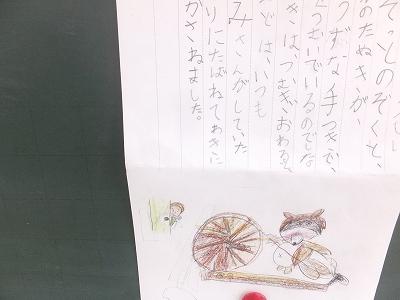 そっとのぞくと、
のたぬきが、
うずな手つきで、
つむいでいるのでした
きは、つむぎおわると
どは、いつも
みさんがしていた
りにたばねてわきに
かさねました。